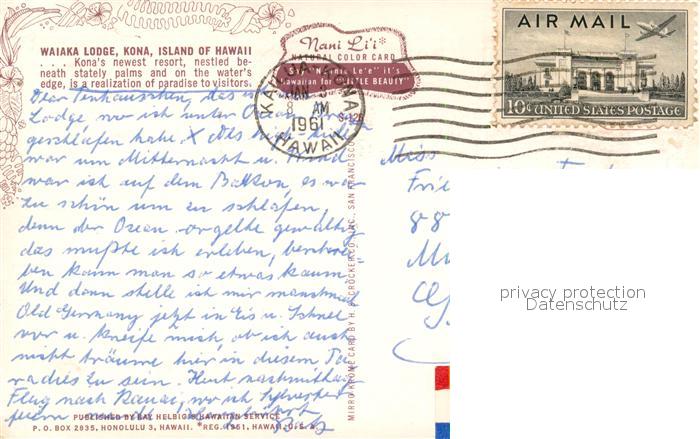 WAIAKA LODGE, KONA, ISLAND OF HAWAII
. . . . Kona's newest resort, nestled be-
neath stately palms and on the water's
edge, is a realization of paradise to visitors.
Nani Li'i*
NATURAL COLOR CARD
"Little Beauty"
KAILUA KONA
JAN
8 AM
1961
HAWAII
S-126
AIR MAIL
10¢ UNITED STATES POSTAGE
Dear das ist
Lodge wo ich unter
geschlafen habe. X
war um Mitternacht u.
war ich auf dem Balkon, es war
zu schön um zu schlafen,
denn der Ocean orgelte gewaltig
das mußte ich erleben, beschrei-
ben kann man so etwas kaum.
Und dann stelle ich mir manchmal
Old Germany jetzt in Eis u. Schnee
vor u. kneife mich, ob ich auch
nicht träume hier in diesem Pa-
radies zu sein. Heut nachmittag
Flug nach Kauai, wo ich Sylvester
feiern
Miss
Frie
88
Mü
MIRRO-KROME CARD BY H. S. CROCKER CO., INC., SAN FRANCISCO
PUBLISHED BY RAY HELBIG'S HAWAIIAN SERVICE
P. O. BOX 2835, HONOLULU 3, HAWAII. *REG. 1951, HAWAII, U. S. A.
privacy protection
Datenschutz